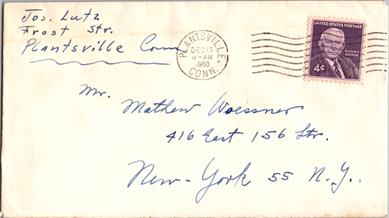 Jos. Lutz
Frost Str.
Plantsville Conn
PLANTSVILLE,
DEC 13
M-AM
1960
CONN.
UNITED STATES POSTAGE
4¢
Mr. Mathew Woessner
416 East 156 Str.
New-York 55 N.Y.